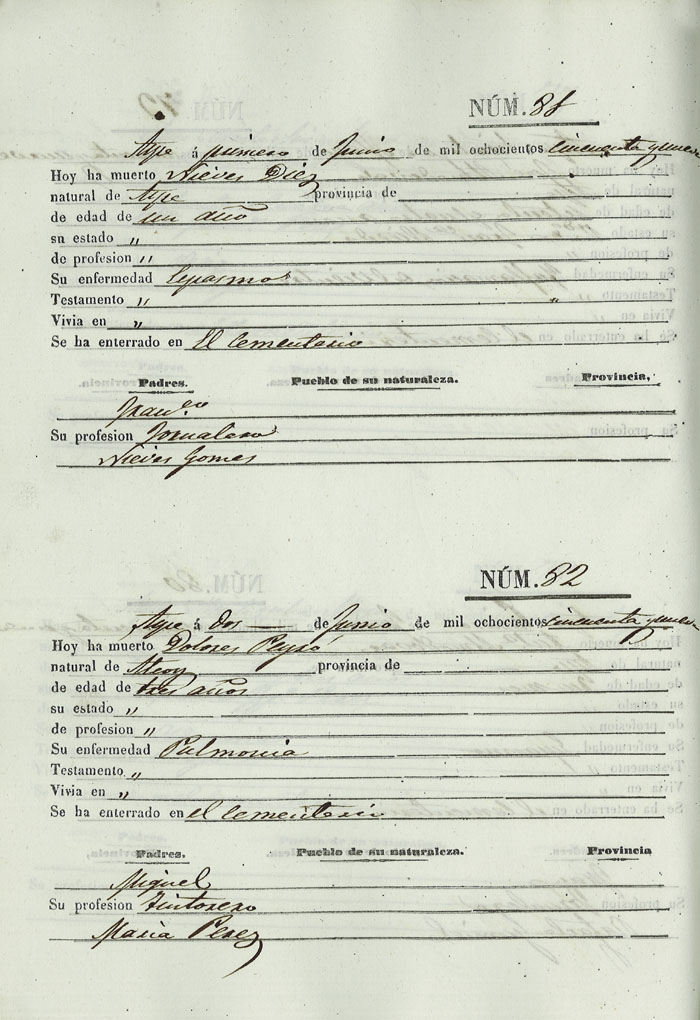 NÚM. 81
Aspe á primero de Junio de mil ochocientos cincuenta y nueve
Hoy ha muerto Nieves Diez
natural de Aspe provincia de
de edad de un año
su estado "
de profesion "
Su enfermedad Espasmos
Testamento "
Vivia en "
Se ha enterrado en El Cementerio
Padres. Pueblo de su naturaleza. Provincia,
Fran.co
Su profesion Jornalero
Nieves Gomes
NÚM. 82
Aspe á dos de Junio de mil ochocientos cincuenta y nueve
Hoy ha muerto Dolores Peyró
natural de Alcoy provincia de
de edad de tres años
su estado "
de profesion "
Su enfermedad Pulmonia
Testamento "
Vivia en "
Se ha enterrado en el Cementerio
Padres. Pueblo de su naturaleza. Provincia
Miguel
Su profesion Tintorero
Maria Perez